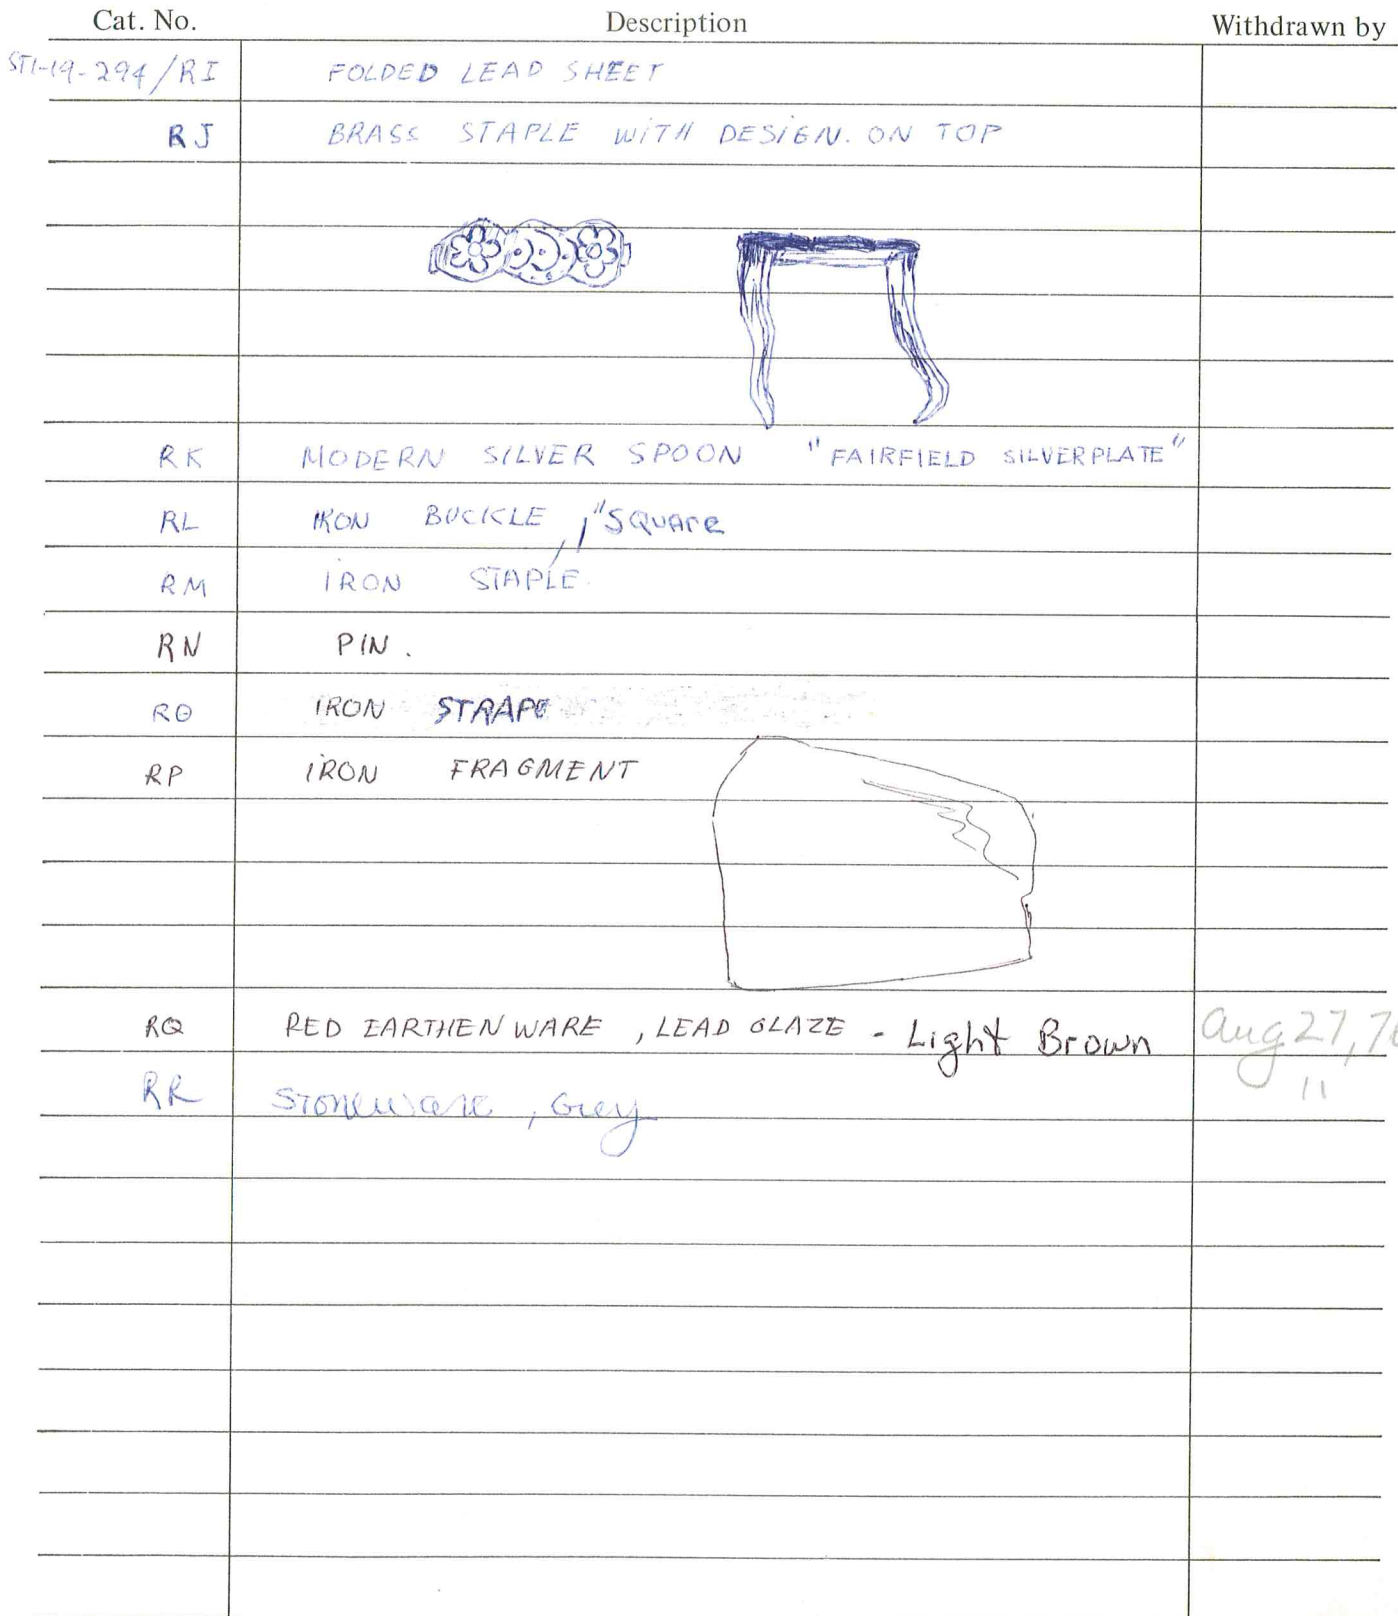 Cat. No. Description Withdrawn by
ST1-19-294/RI FOLDED LEAD SHEET
RJ BRASS STAPLE WITH DESIGN. ON TOP
RK MODERN SILVER SPOON "FAIRFIELD SILVERPLATE"
RL IRON BUCKLE, 1" SQUARE
RM IRON STAPLE.
RN PIN.
RO IRON STRAPE
RP IRON FRAGMENT
RQ RED EARTHENWARE, LEAD GLAZE - Light Brown Aug 27, 76
RR Stoneware, Grey "